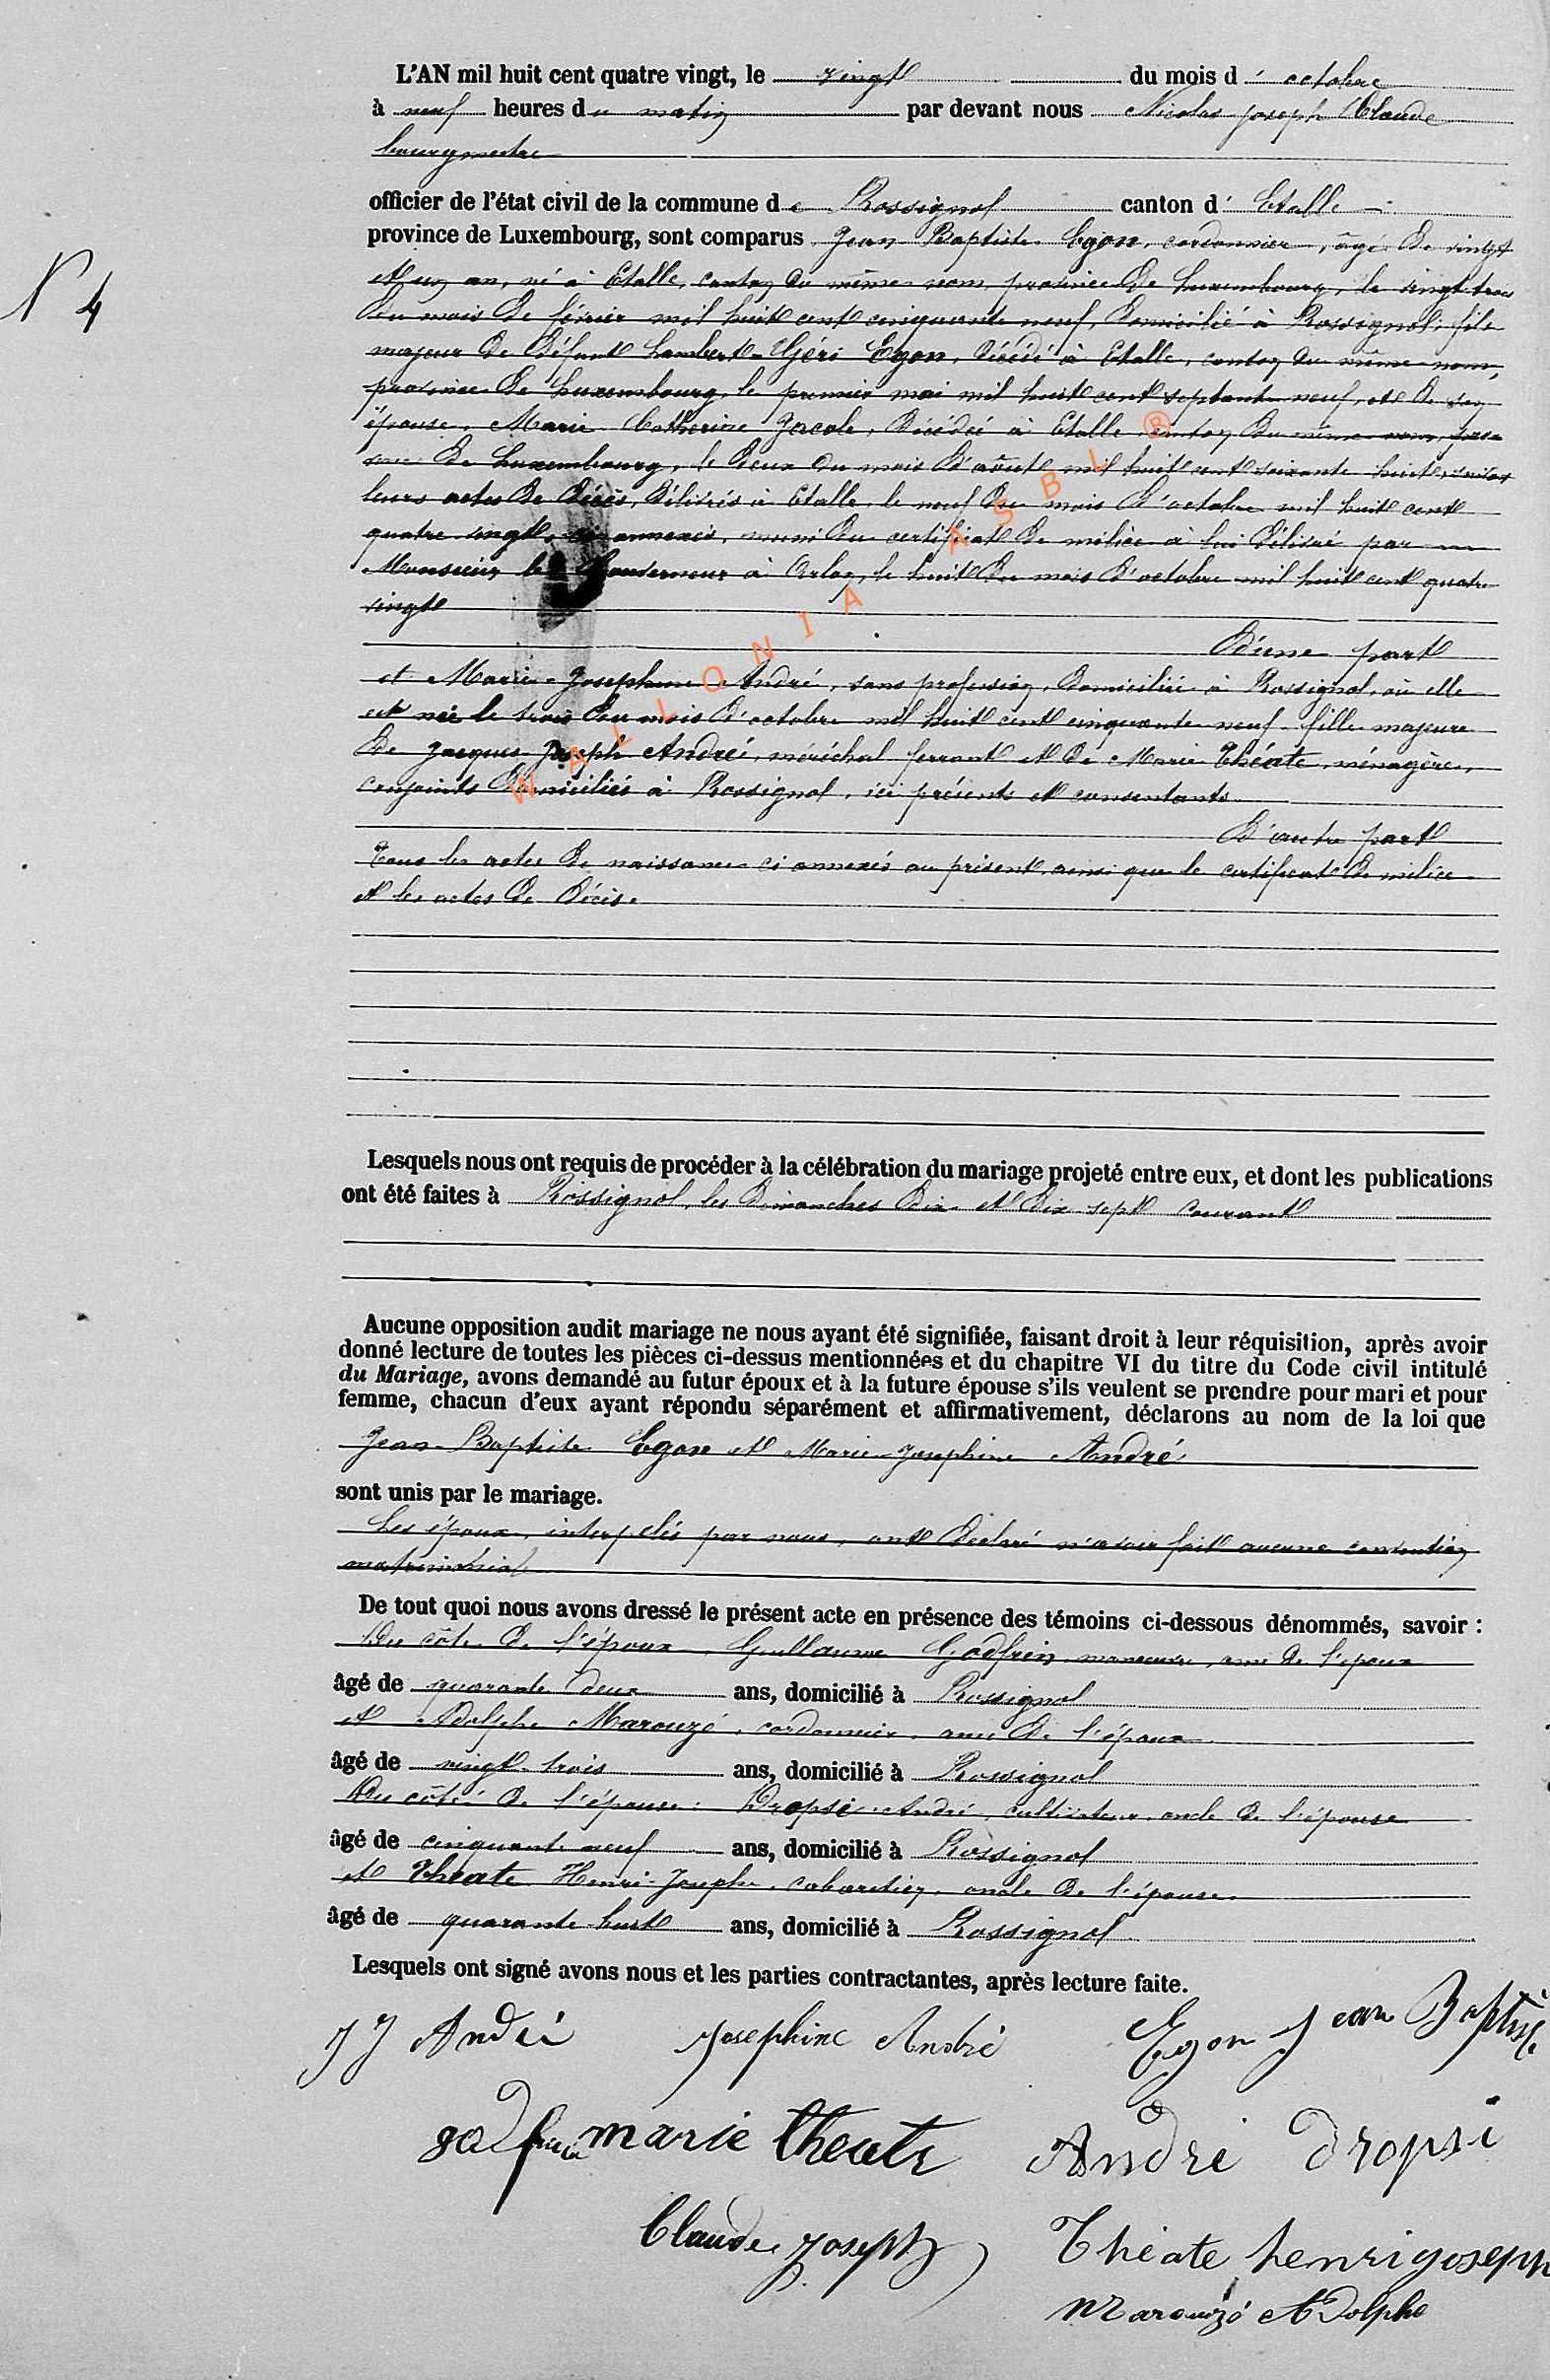 L'AN mil huit cent quatre vingt, le vingt du mois d'octobre
à neuf heures du matin par devant nous Nicolas Joseph Claude
bourgmestre
officier de l'état civil de la commune de Rossignol canton d'Etalle
province de Luxembourg, sont comparus Jean Baptiste Egon, cordonnier, âgé de vingt
N 4
et un an, né à Etalle, canton du même nom, province de Luxembourg, le vingt trois
du mois de février mil huit cent cinquante neuf, domicilié à Rossignol, fils
majeur de défunt Lambert-Géri Egon, décédé à Etalle, canton du même nom,
province de Luxembourg, le premier mai mil huit cent septante neuf, et de son
épouse, Marie Catherine Jacole, décédée à Etalle, canton du même nom, pro-
vince de Luxembourg, le deux du mois d'août mil huit cent soixante huit, suivant
leurs actes de décès, délivrés à Etalle, le neuf du mois d'octobre mil huit cent
quatre vingt, ci annexés, muni du certificat de milice à lui délivré par
Monsieur le Gouverneur à Arlon, le huit du mois d'octobre mil huit cent quatre
vingt
D'une part
et Marie-Josephine André, sans profession, domiciliée à Rossignol, où elle
est née le trois du mois d'octobre mil huit cent cinquante neuf, fille majeure
de Jacques Joseph André, maréchal ferrant et de Marie Théate, ménagère,
conjoints domiciliés à Rossignol, ici présents et consentants.
D'autre part
Tous les actes de naissance ci annexés au présent, ainsi que le certificat de milice
et les actes de décès.
WALLONIA ASBL ®
Lesquels nous ont requis de procéder à la célébration du mariage projeté entre eux, et dont les publications
ont été faites à Rossignol, les dimanches dix et dix sept courant
Aucune opposition audit mariage ne nous ayant été signifiée, faisant droit à leur réquisition, après avoir
donné lecture de toutes les pièces ci-dessus mentionnées et du chapitre VI du titre du Code civil intitulé
du Mariage, avons demandé au futur époux et à la future épouse s'ils veulent se prendre pour mari et pour
femme, chacun d'eux ayant répondu séparément et affirmativement, déclarons au nom de la loi que
Jean-Baptiste Egon et Marie-Josephine André
sont unis par le mariage.
Les époux, interpelés par nous, ont déclaré n'avoir fait aucune convention
matrimonial
De tout quoi nous avons dressé le présent acte en présence des témoins ci-dessous dénommés, savoir :
Du côté de l'époux Guillaume Godfrin, manoeuvre, ami de l'époux
âgé de quarante deux ans, domicilié à Rossignol
et Adolphe Marouzé, cordonnier, ami de l'époux
âgé de vingt-trois ans, domicilié à Rossignol
Du côté de l'épouse: Dropsi André, cultivateur, oncle de l'épouse
âgé de cinquante neuf ans, domicilié à Rossignol
et Théate Henri-Joseph, cabaretier, oncle de l'épouse
âgé de quarante-huit ans, domicilié à Rossignol
Lesquels ont signé avons nous et les parties contractantes, après lecture faite.
J J André Josephine André Egon Jean Baptiste
godfrin marie theate André Dropsi
Claude Joseph Théate henri joseph
Marouzé Adolphe